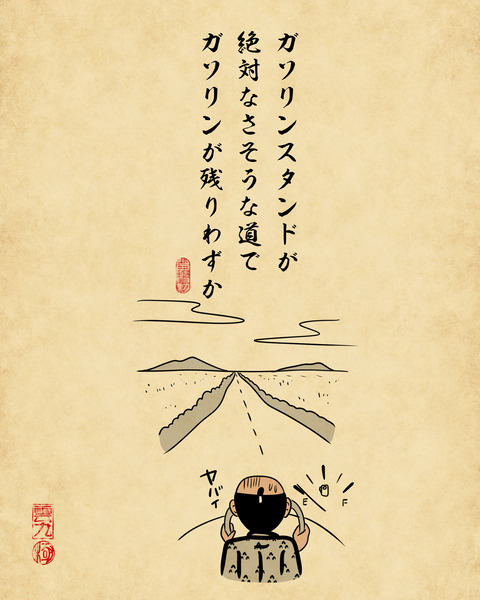 ガソリンスタンドが
絶対なさそうな道で
ガソリンが残りわずか
ヤバイ
E
F